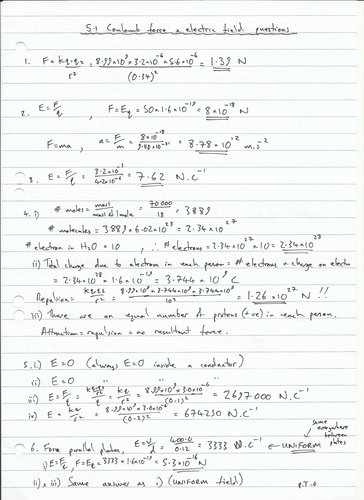 5.1 Coulomb force & electric field questions
1. F = kq₁q₂/r² = 8.99×10⁹×3.2×10⁻⁶×5.6×10⁻⁶/(0.34)² = 1.39 N
2. E = F/q , F = Eq = 50×1.6×10⁻¹⁹ = 8×10⁻¹⁸ N
F = ma, a = F/m = 8×10⁻¹⁸/9.11×10⁻³¹ = 8.78×10¹² m.s⁻²
3. E = F/q = 3.2×10⁻⁵/4.2×10⁻⁶ = 7.62 N.C⁻¹
4. i) # moles = mass/mass of 1 mole = 70000/18 = 3889
# molecules = 3889×6.02×10²³ = 2.34×10²⁷
# electron in H₂O = 10 , ∴ # electrons = 2.34×10²⁷×10 = 2.34×10²⁸
ii) Total charge due to electron in each person = # electrons × charge on electron
= 2.34×10²⁸×1.6×10⁻¹⁹ = 3.744×10⁹ C
Repulsion = kq₁q₂/r² = 8.99×10⁹×3.744×10⁹×3.744×10⁹/10² = 1.26×10²⁷ N !!
iii) There are an equal number of protons (+ve) in each person.
Attraction = repulsion = no resultant force.
5. i) E = 0 (always E = 0 inside a conductor)
ii) E = 0
iii) E = F/q = kq₁q₂/r²/q = kq/r² = 8.99×10⁹×3.0×10⁻⁶/(0.1)² = 2697000 N.C⁻¹
iv) E = kq/r² = 8.99×10⁹×3.0×10⁻⁶/(0.2)² = 674250 N.C⁻¹
6. For parallel plates, E = V/d = 400.0/0.12 = 3333 N.C⁻¹ ← UNIFORM
same everywhere between plates
i) E = F/q, F = Eq = 3333×1.6×10⁻¹⁹ = 5.3×10⁻¹⁶ N
ii) & iii) Same answer as i) (UNIFORM field)
P.T.O